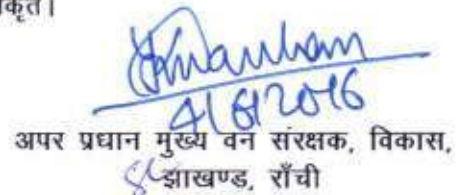 कृत।
4/6/2016
अपर प्रधान मुख्य वन संरक्षक, विकास,
झाखण्ड, राँची